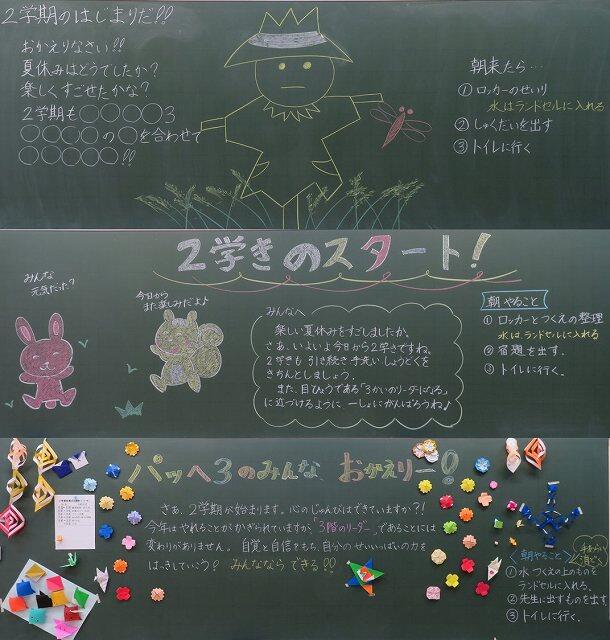 2学期のはじまりだ!!
おかえりなさい!!
夏休みはどうでしたか?
楽しくすごせたかな?
2学期も〇〇〇〇3
〇〇〇〇の〇を合わせて
〇〇〇〇〇!!
朝来たら…
① ロッカーのせいり
水はランドセルに入れる
② しゅくだいを出す
③ トイレに行く
2学きのスタート!
みんな
元気だった?
今日から
また楽しみだよ♪
みんなへ
楽しい夏休みをすごしましたか。
さあ、いよいよ今日から2学きですね。
2学きも 引き続き 手洗い しょうどくを
きちんとしましょう。
また、目ひょうである「3かいのリーダーになる」
に近づけるように 一しょにがんばろうね♪
朝 やること
① ロッカーとつくえの整理
水は ランドセルに入れる
② 宿題を出す。
③ トイレに行く。
パッへ3のみんな おかえりー!!
さぁ、2学期が始まります。心のじゅんびはできていますか?!
今年はやれることがかぎられていますが、"3階のリーダー"であることには
変わりがありません。自覚と自信をもち、自分のせいいっぱいの力を
はっきしていこう? みんななら できる!!
朝やること
手あらい
① 水 つくえの上のものを
ランドセルに入れる。
② 先生に出すものを出す
③ トイレに行く。